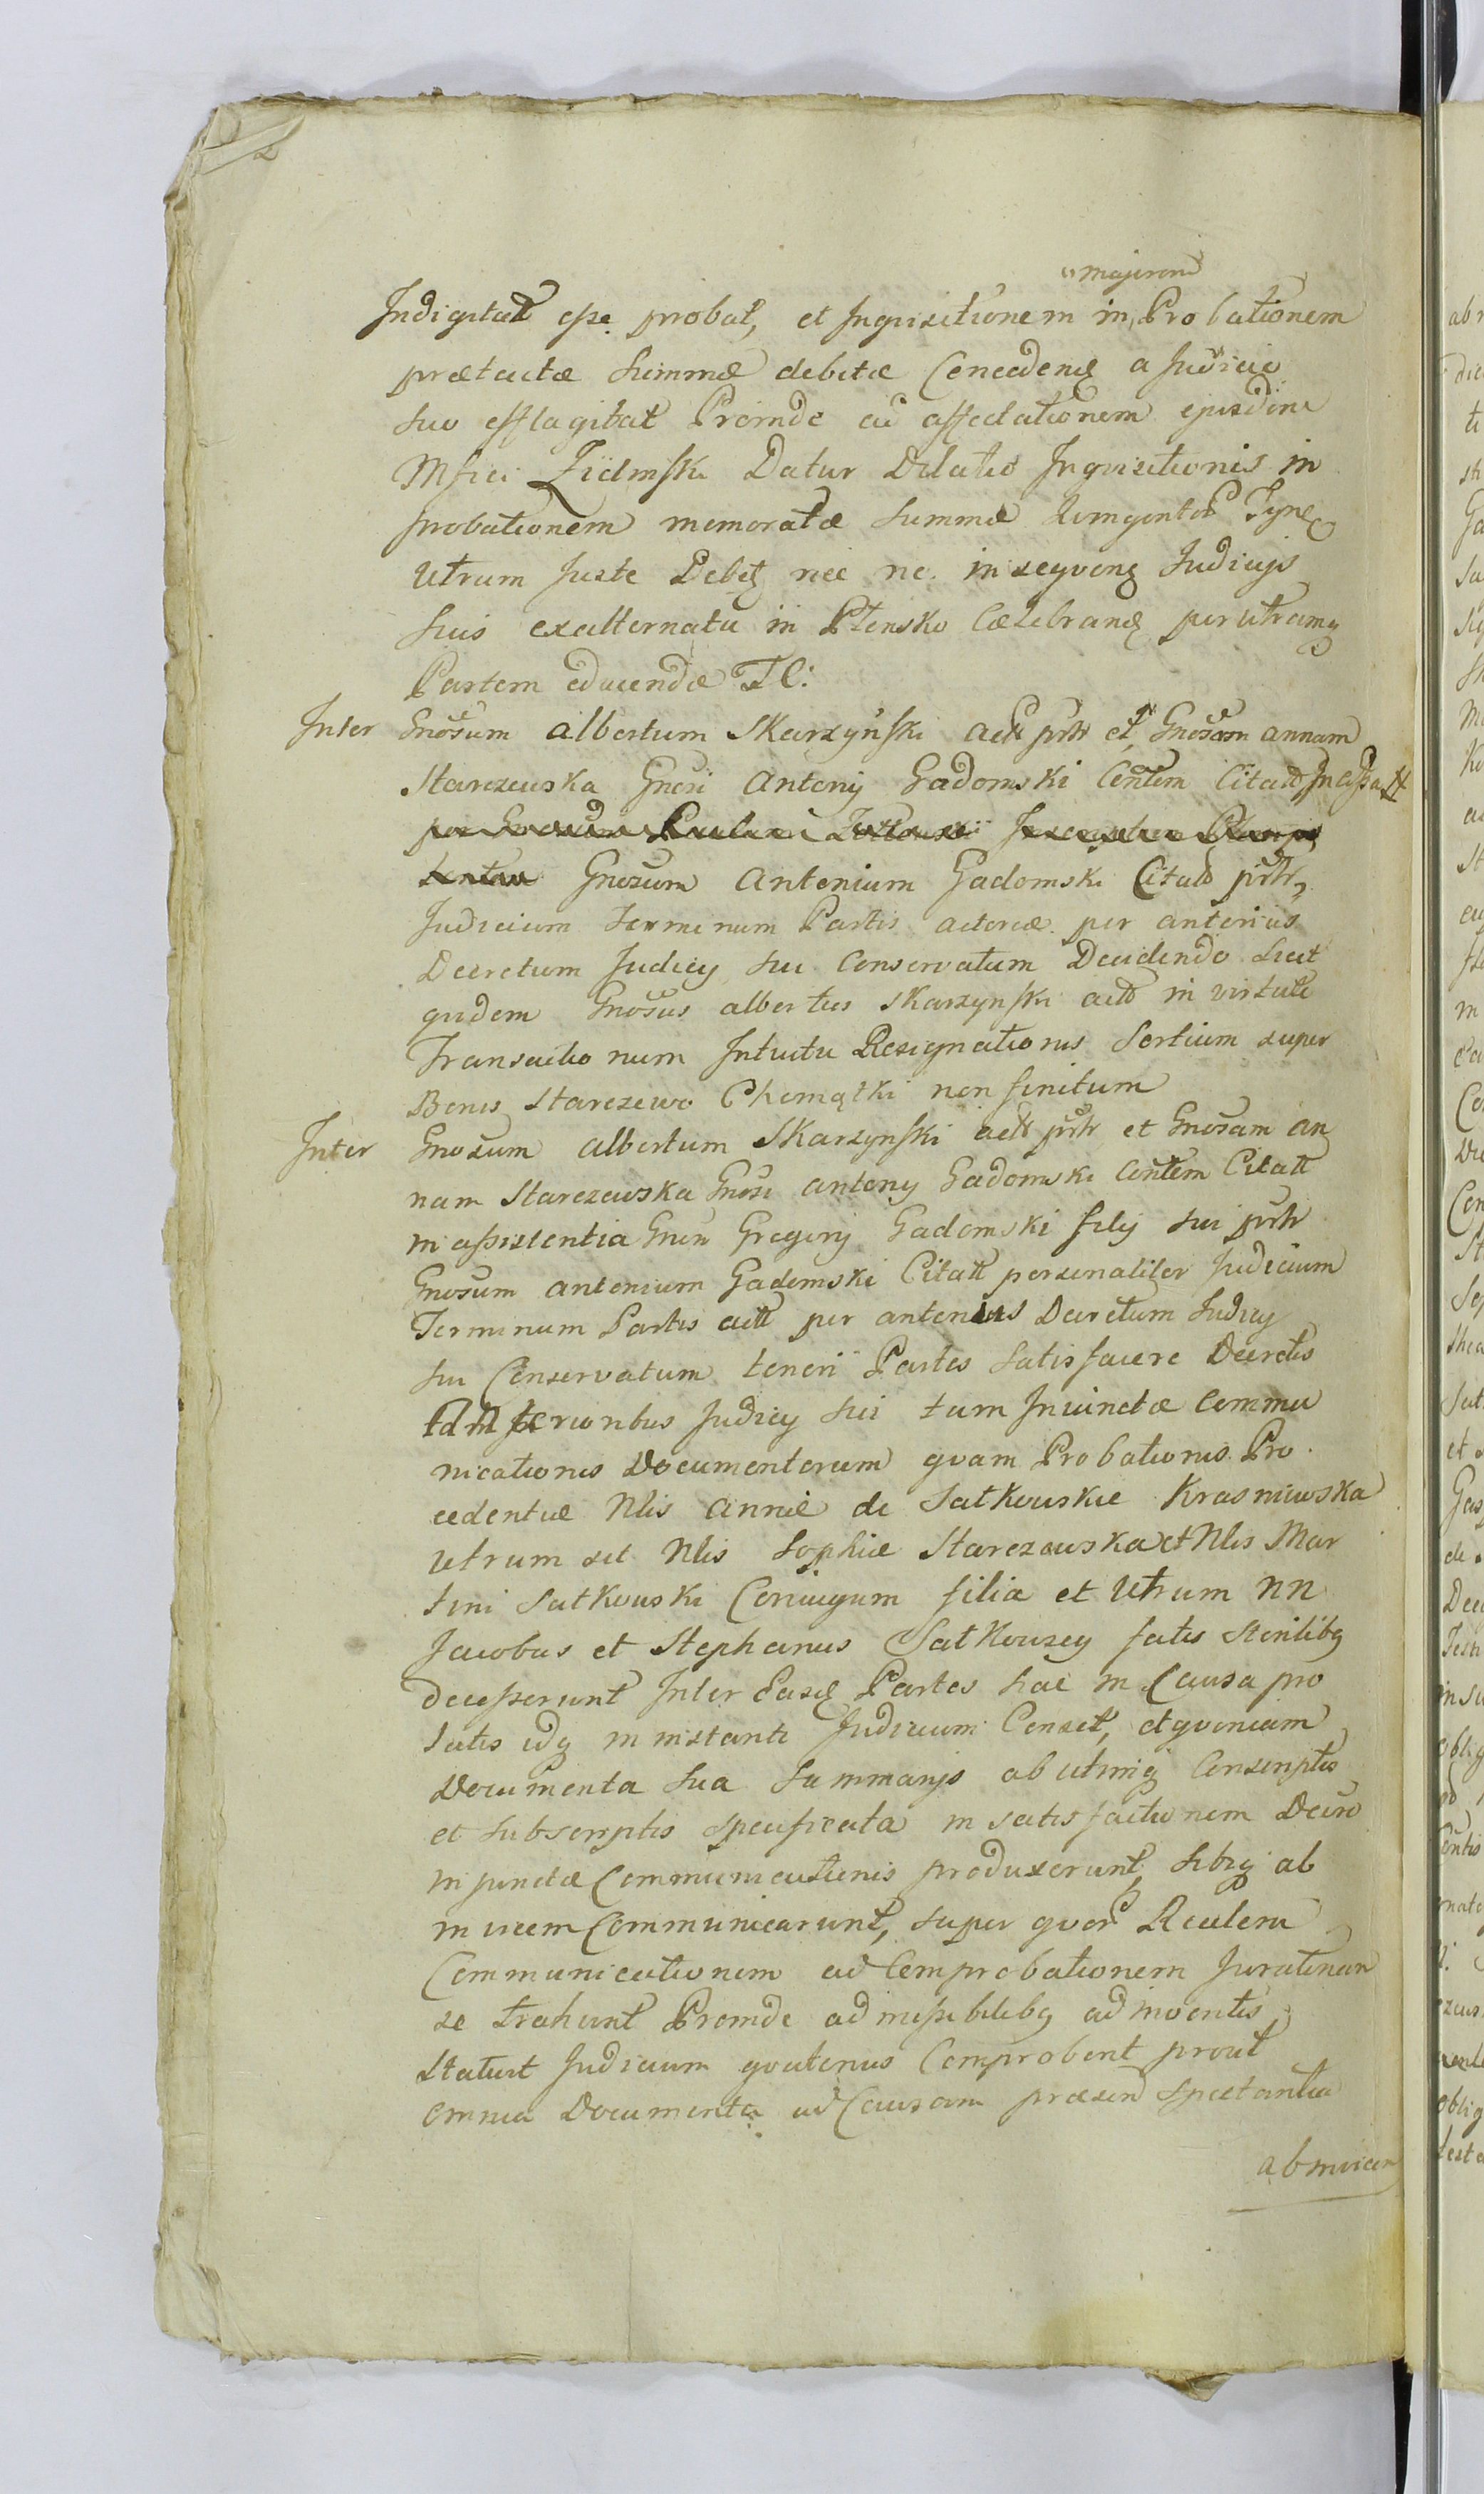 2
majorem
Indigitat esse probat, et Inquisitionem in Probationem
prætactæ Summæ debitæ Concedend a Judicio
suo efflagitat Proinde ad affectationem ejusdem
Mfici Zielinski Datur Dilatio Inquisitionis in
probationem memoratæ Summæ Tynf
Utrum Juste Debet nec ne in sequeng Judicijs
suis exalternata in Plensko Cælebrand per utramq
Partem educendæ TC:
Inter Gnosum Albertum Skarzynski actt prtr et Gnosam annam
Starczewska Gnosi Antonij Gadomski Contem Citatt
Gnosum Antonium Gadomski Citatt prtr
Judicium terminum Partis actoreæ per anterius
Decretum Judicy sui Conservatum Decidendo Licet
quidem Gnosus albertus Skarzynski actt in virtute
Transactionum Intuitu Resignationis Sortium super
Bonis Starczewo Chomątki non finitum
Inter Gnosum Albertum Skarzynski actt prtr et Gnosam an
nam Starczewska Gnosi antonij Gadomski Contem Citatt
in assistentia Gnosi Gregorij Gadomski filij sui prtr
Gnosum antonium Gadomski Citatt personaliter Judicium
Terminum Partis actt per anterius Decretum Judicy
sui Conservatum teneri Partes Satisfacere Decretis
Judicy sui tum Iniunctæ Commu
nicationis Documentorum quam Probationis Pro
cedentiæ Nlis Annæ de Satkowskie Krasniewska
Utrum sit Nlis Sophiæ Starczewska et Nlis Mar
tini Satkowski Coniugum filia et Utrum NN
Jacobus et Stephanus Satkowscy fatis Sterilibq
decesserunt Inter Easd Partes hac in Causa pro
latis idq in instanti Judicium Censet, et quoniam
Documenta sua Summarijs ab utrinq Conscriptis
et Subscriptis Specificata in satisfactionem Decro
injunctæ Communicationis produxerunt, sibiq ab
invicem Communicarunt, super quor Realem
Communicationem ad Comprobationem Juratenam
se trahunt Proinde admissibilibq adinventis
Statuit Judicium quatenus Comprobent prout
omnia Documenta ad Causam præsen Spectantia
ab invicem